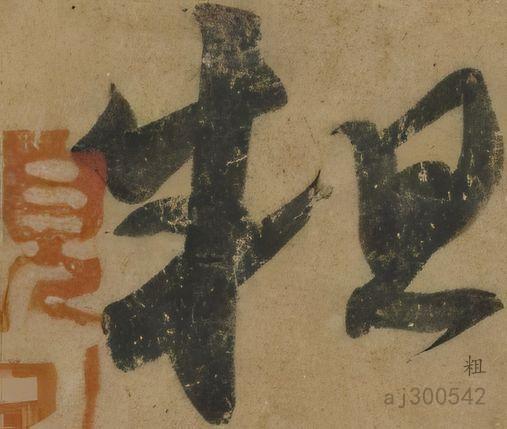 粗
粗
aj300542